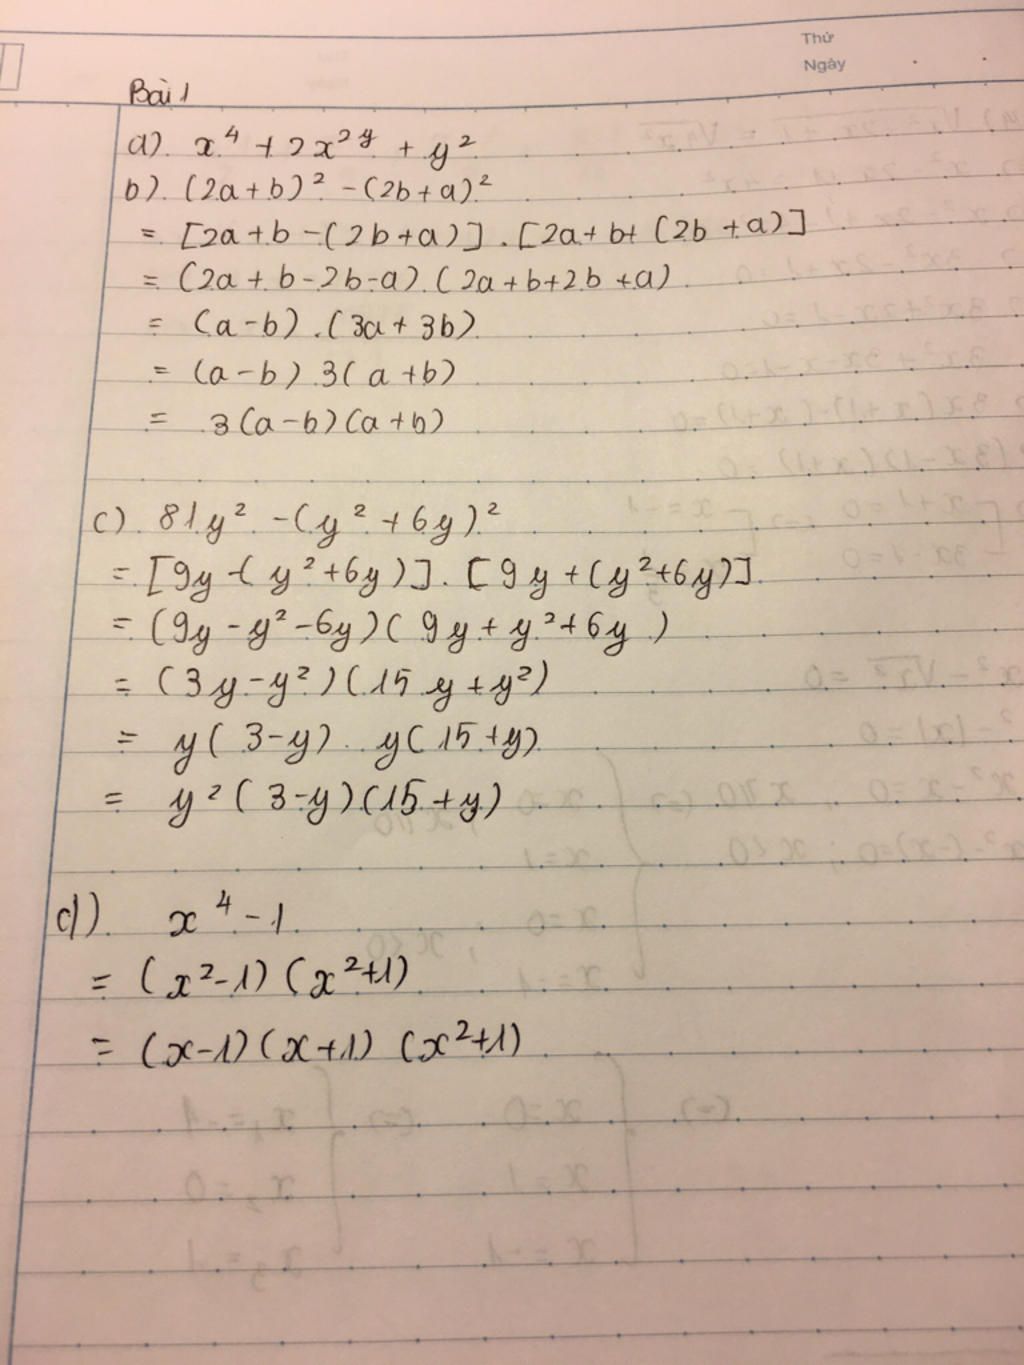 Thứ
Ngày
Bài 1
a). x⁴ + 2x²ʸ + y²
b). (2a+b)² - (2b+a)²
= [2a+b-(2b+a)].[2a+b+(2b+a)]
= (2a+b-2b-a).(2a+b+2b+a)
= (a-b).(3a+3b)
= (a-b) 3(a+b)
= 3(a-b)(a+b)
c) 81y² - (y²+6y)²
= [9y-(y²+6y)].[9y+(y²+6y)]
= (9y-y²-6y)(9y+y²+6y)
= (3y-y²)(15y+y²)
= y(3-y). y(15+y)
= y²(3-y)(15+y)
d). x⁴-1
= (x²-1)(x²+1)
= (x-1)(x+1)(x²+1)